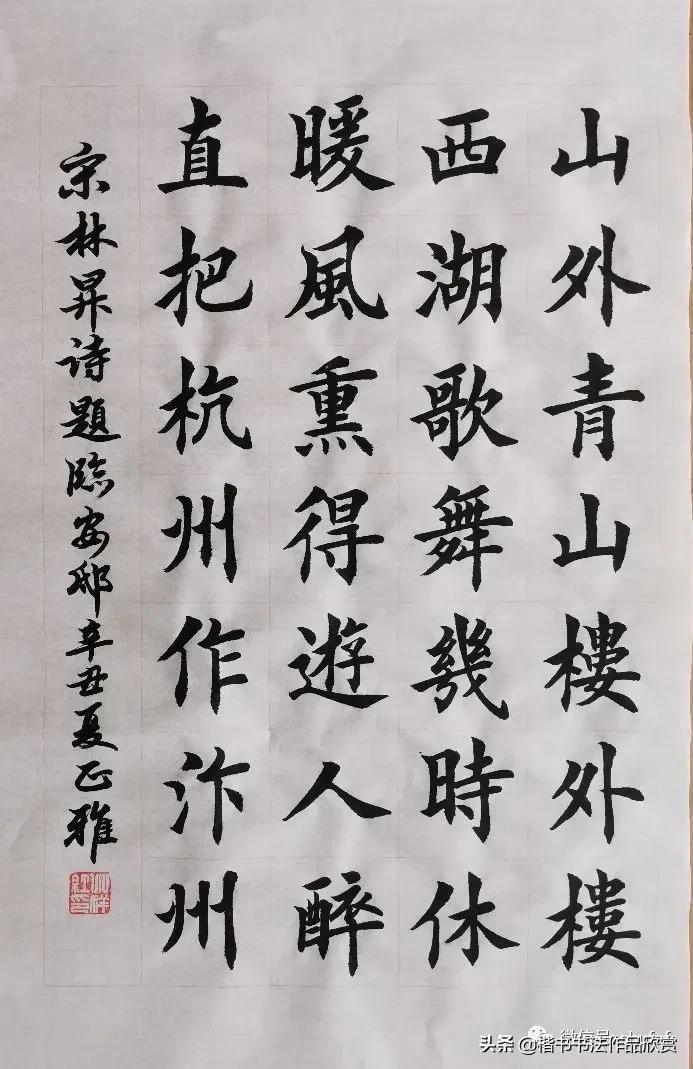 山外青山樓外樓
西湖歌舞幾時休
暖風熏得遊人醉
直把杭州作汴州
宋林昇诗題臨安邸辛丑夏正雅
头条 @楷书书法作品欣赏